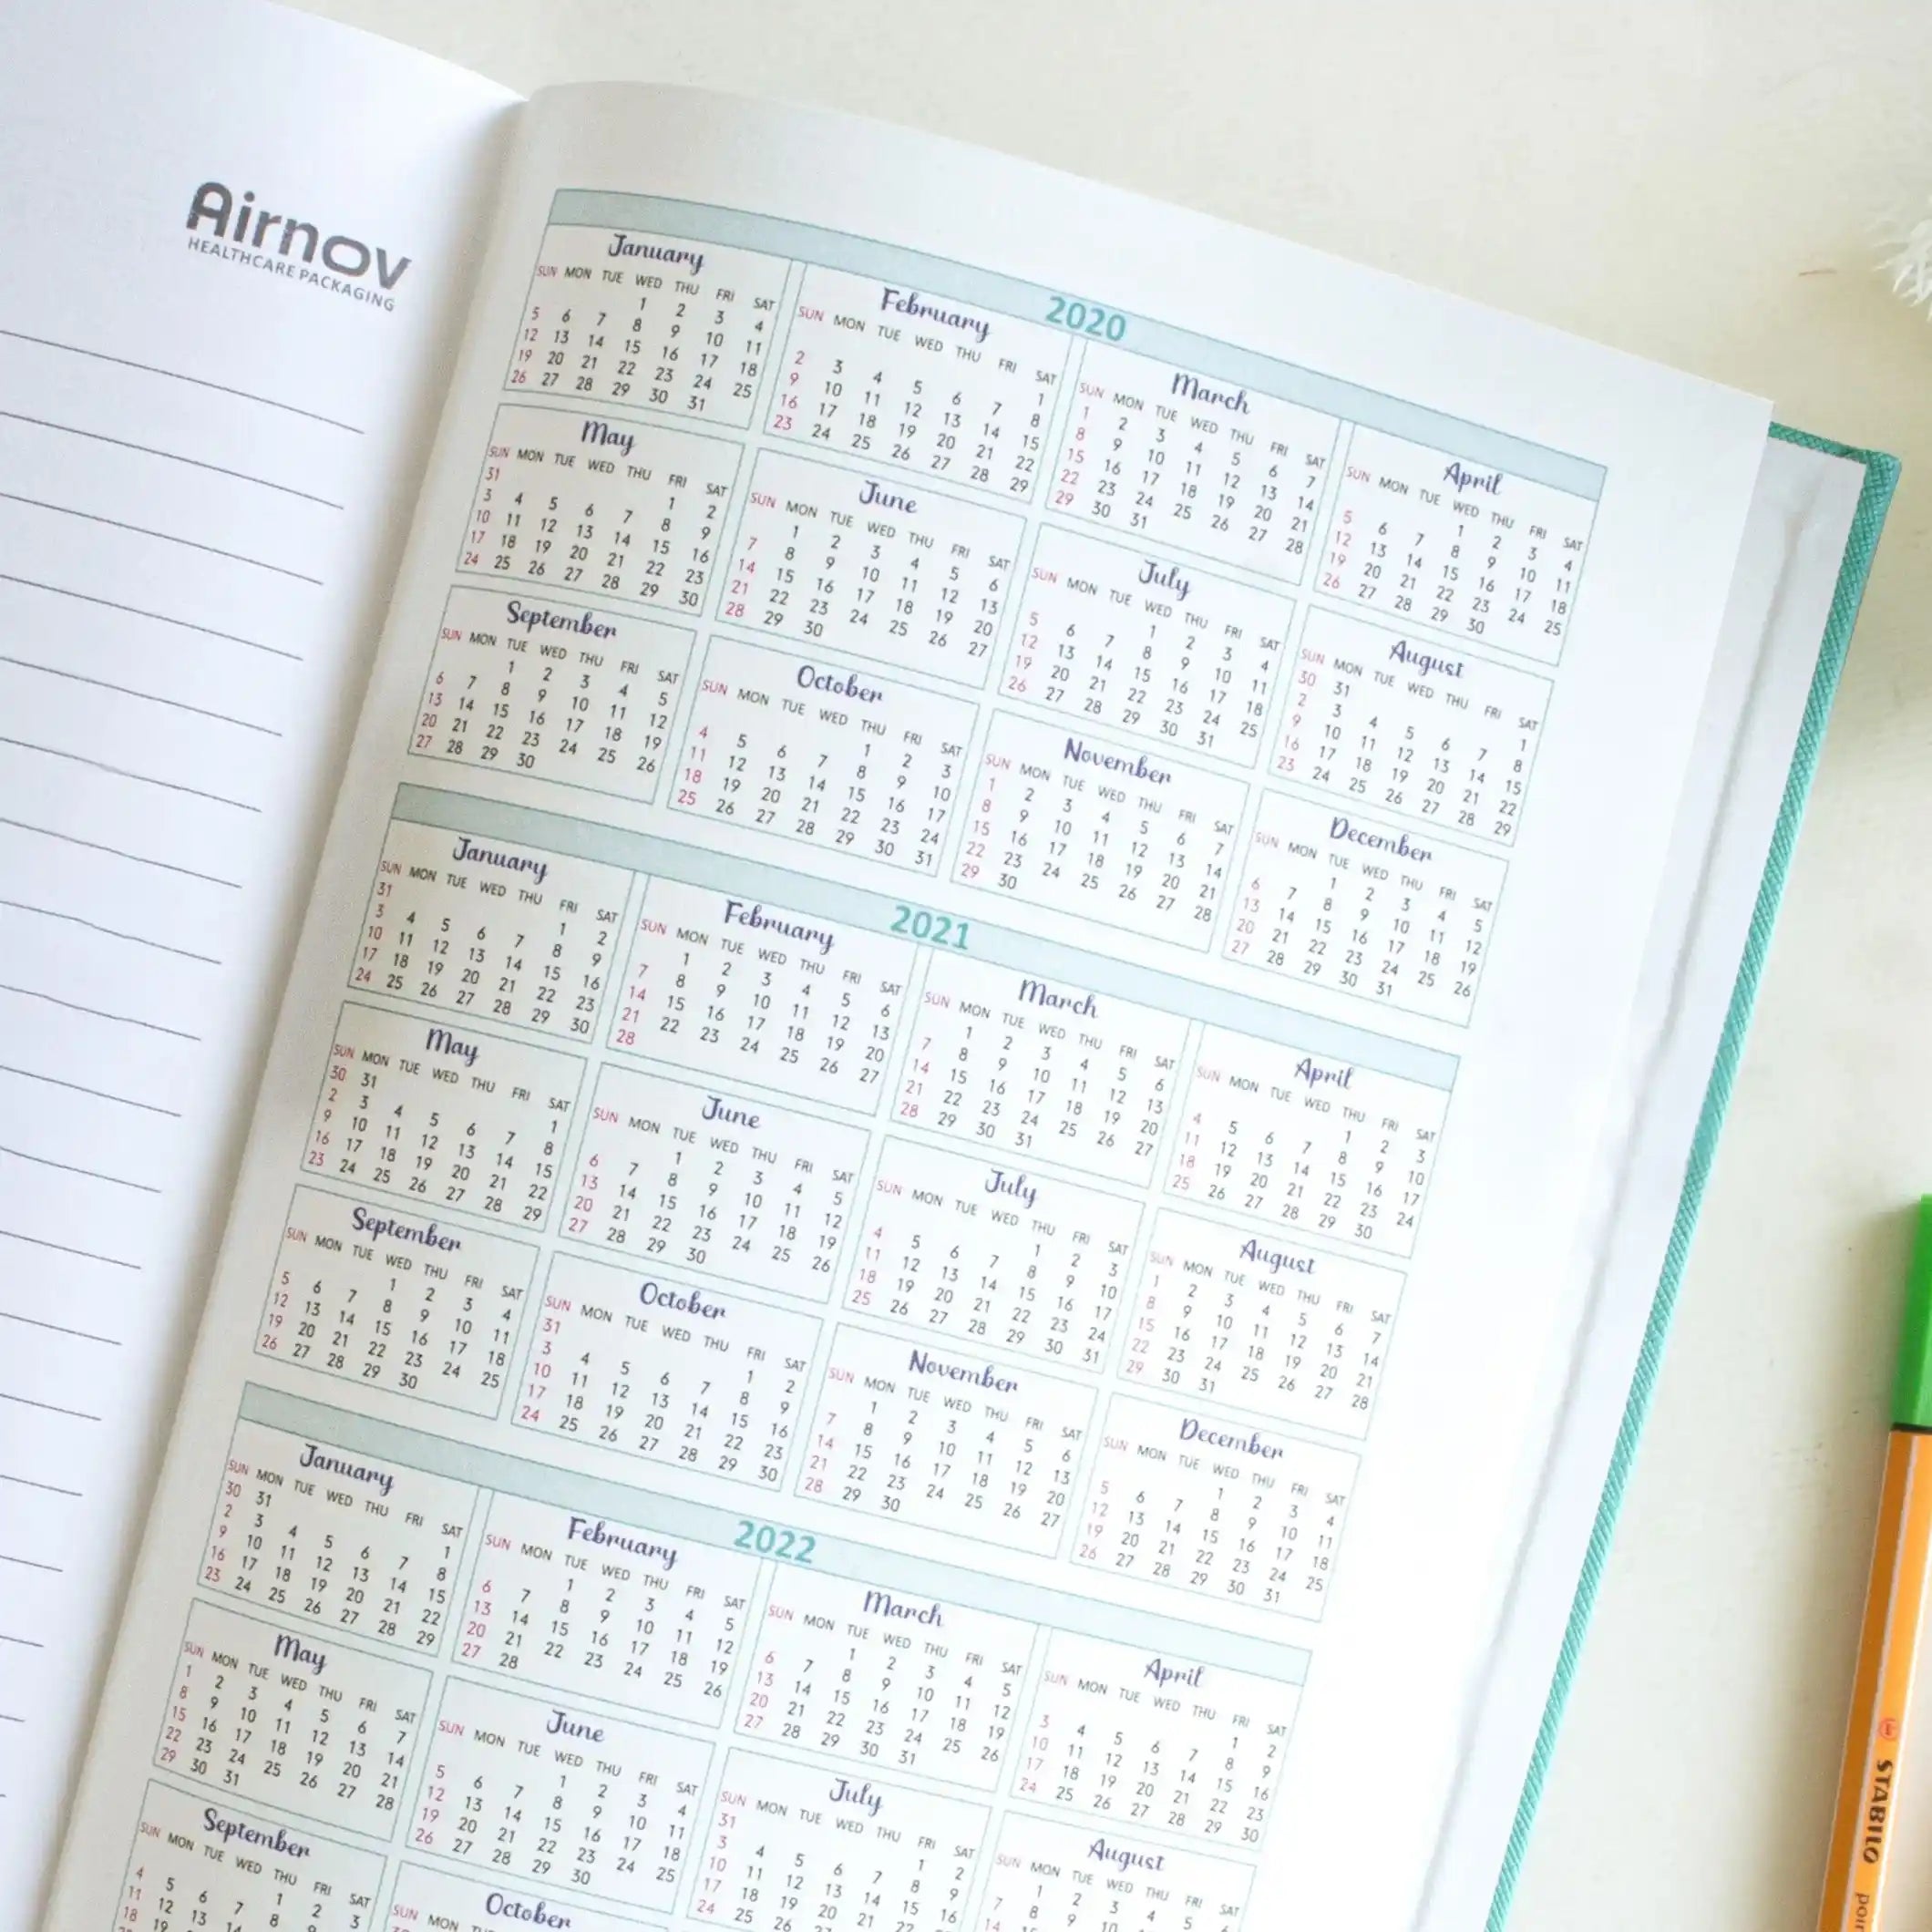 Airnov
HEALTHCARE PACKAGING
2020
January
SUN MON TUE WED THU FRI SAT
1 2 3 4
5 6 7 8 9 10 11
12 13 14 15 16 17 18
19 20 21 22 23 24 25
26 27 28 29 30 31
February
SUN MON TUE WED THU FRI SAT
1
2 3 4 5 6 7 8
9 10 11 12 13 14 15
16 17 18 19 20 21 22
23 24 25 26 27 28 29
March
SUN MON TUE WED THU FRI SAT
1 2 3 4 5 6 7
8 9 10 11 12 13 14
15 16 17 18 19 20 21
22 23 24 25 26 27 28
29 30 31
April
SUN MON TUE WED THU FRI SAT
1 2 3 4
5 6 7 8 9 10 11
12 13 14 15 16 17 18
19 20 21 22 23 24 25
26 27 28 29 30
May
SUN MON TUE WED THU FRI SAT
31 1 2
3 4 5 6 7 8 9
10 11 12 13 14 15 16
17 18 19 20 21 22 23
24 25 26 27 28 29 30
June
SUN MON TUE WED THU FRI SAT
1 2 3 4 5 6
7 8 9 10 11 12 13
14 15 16 17 18 19 20
21 22 23 24 25 26 27
28 29 30
July
SUN MON TUE WED THU FRI SAT
1 2 3 4
5 6 7 8 9 10 11
12 13 14 15 16 17 18
19 20 21 22 23 24 25
26 27 28 29 30 31
August
SUN MON TUE WED THU FRI SAT
30 31 1
2 3 4 5 6 7 8
9 10 11 12 13 14 15
16 17 18 19 20 21 22
23 24 25 26 27 28 29
September
SUN MON TUE WED THU FRI SAT
1 2 3 4 5
6 7 8 9 10 11 12
13 14 15 16 17 18 19
20 21 22 23 24 25 26
27 28 29 30
October
SUN MON TUE WED THU FRI SAT
1 2 3
4 5 6 7 8 9 10
11 12 13 14 15 16 17
18 19 20 21 22 23 24
25 26 27 28 29 30 31
November
SUN MON TUE WED THU FRI SAT
1 2 3 4 5 6 7
8 9 10 11 12 13 14
15 16 17 18 19 20 21
22 23 24 25 26 27 28
29 30
December
SUN MON TUE WED THU FRI SAT
1 2 3 4 5
6 7 8 9 10 11 12
13 14 15 16 17 18 19
20 21 22 23 24 25 26
27 28 29 30 31
2021
January
SUN MON TUE WED THU FRI SAT
31 1 2
3 4 5 6 7 8 9
10 11 12 13 14 15 16
17 18 19 20 21 22 23
24 25 26 27 28 29 30
February
SUN MON TUE WED THU FRI SAT
1 2 3 4 5 6
7 8 9 10 11 12 13
14 15 16 17 18 19 20
21 22 23 24 25 26 27
28
March
SUN MON TUE WED THU FRI SAT
1 2 3 4 5 6
7 8 9 10 11 12 13
14 15 16 17 18 19 20
21 22 23 24 25 26 27
28 29 30 31
April
SUN MON TUE WED THU FRI SAT
1 2 3
4 5 6 7 8 9 10
11 12 13 14 15 16 17
18 19 20 21 22 23 24
25 26 27 28 29 30
May
SUN MON TUE WED THU FRI SAT
30 31 1
2 3 4 5 6 7 8
9 10 11 12 13 14 15
16 17 18 19 20 21 22
23 24 25 26 27 28 29
June
SUN MON TUE WED THU FRI SAT
1 2 3 4 5
6 7 8 9 10 11 12
13 14 15 16 17 18 19
20 21 22 23 24 25 26
27 28 29 30
July
SUN MON TUE WED THU FRI SAT
1 2 3
4 5 6 7 8 9 10
11 12 13 14 15 16 17
18 19 20 21 22 23 24
25 26 27 28 29 30 31
August
SUN MON TUE WED THU FRI SAT
1 2 3 4 5 6 7
8 9 10 11 12 13 14
15 16 17 18 19 20 21
22 23 24 25 26 27 28
29 30 31
September
SUN MON TUE WED THU FRI SAT
1 2 3 4
5 6 7 8 9 10 11
12 13 14 15 16 17 18
19 20 21 22 23 24 25
26 27 28 29 30
October
SUN MON TUE WED THU FRI SAT
31 1 2
3 4 5 6 7 8 9
10 11 12 13 14 15 16
17 18 19 20 21 22 23
24 25 26 27 28 29 30
November
SUN MON TUE WED THU FRI SAT
1 2 3 4 5 6
7 8 9 10 11 12 13
14 15 16 17 18 19 20
21 22 23 24 25 26 27
28 29 30
December
SUN MON TUE WED THU FRI SAT
1 2 3 4
5 6 7 8 9 10 11
12 13 14 15 16 17 18
19 20 21 22 23 24 25
26 27 28 29 30 31
2022
January
SUN MON TUE WED THU FRI SAT
30 31 1
2 3 4 5 6 7 8
9 10 11 12 13 14 15
16 17 18 19 20 21 22
23 24 25 26 27 28 29
February
SUN MON TUE WED THU FRI SAT
1 2 3 4 5
6 7 8 9 10 11 12
13 14 15 16 17 18 19
20 21 22 23 24 25 26
27 28
March
SUN MON TUE WED THU FRI SAT
1 2 3 4 5
6 7 8 9 10 11 12
13 14 15 16 17 18 19
20 21 22 23 24 25 26
27 28 29 30 31
April
SUN MON TUE WED THU FRI SAT
1 2
3 4 5 6 7 8 9
10 11 12 13 14 15 16
17 18 19 20 21 22 23
24 25 26 27 28 29 30
May
SUN MON TUE WED THU FRI SAT
1 2 3 4 5 6 7
8 9 10 11 12 13 14
15 16 17 18 19 20 21
22 23 24 25 26 27 28
29 30 31
June
SUN MON TUE WED THU FRI SAT
1 2 3 4
5 6 7 8 9 10 11
12 13 14 15 16 17 18
19 20 21 22 23 24 25
26 27 28 29 30
July
SUN MON TUE WED THU FRI SAT
31 1 2
3 4 5 6 7 8 9
10 11 12 13 14 15 16
17 18 19 20 21 22
24 25 26
August
SUN MON TUE WED THU FRI SAT
1 2 3 4 5 6
7 8 9 10
14
September
SUN MON TUE WED THU FRI SAT
1 2 3
4 5 6 7 8
11 12 13 14
18 19
October
SUN MON
STABILO